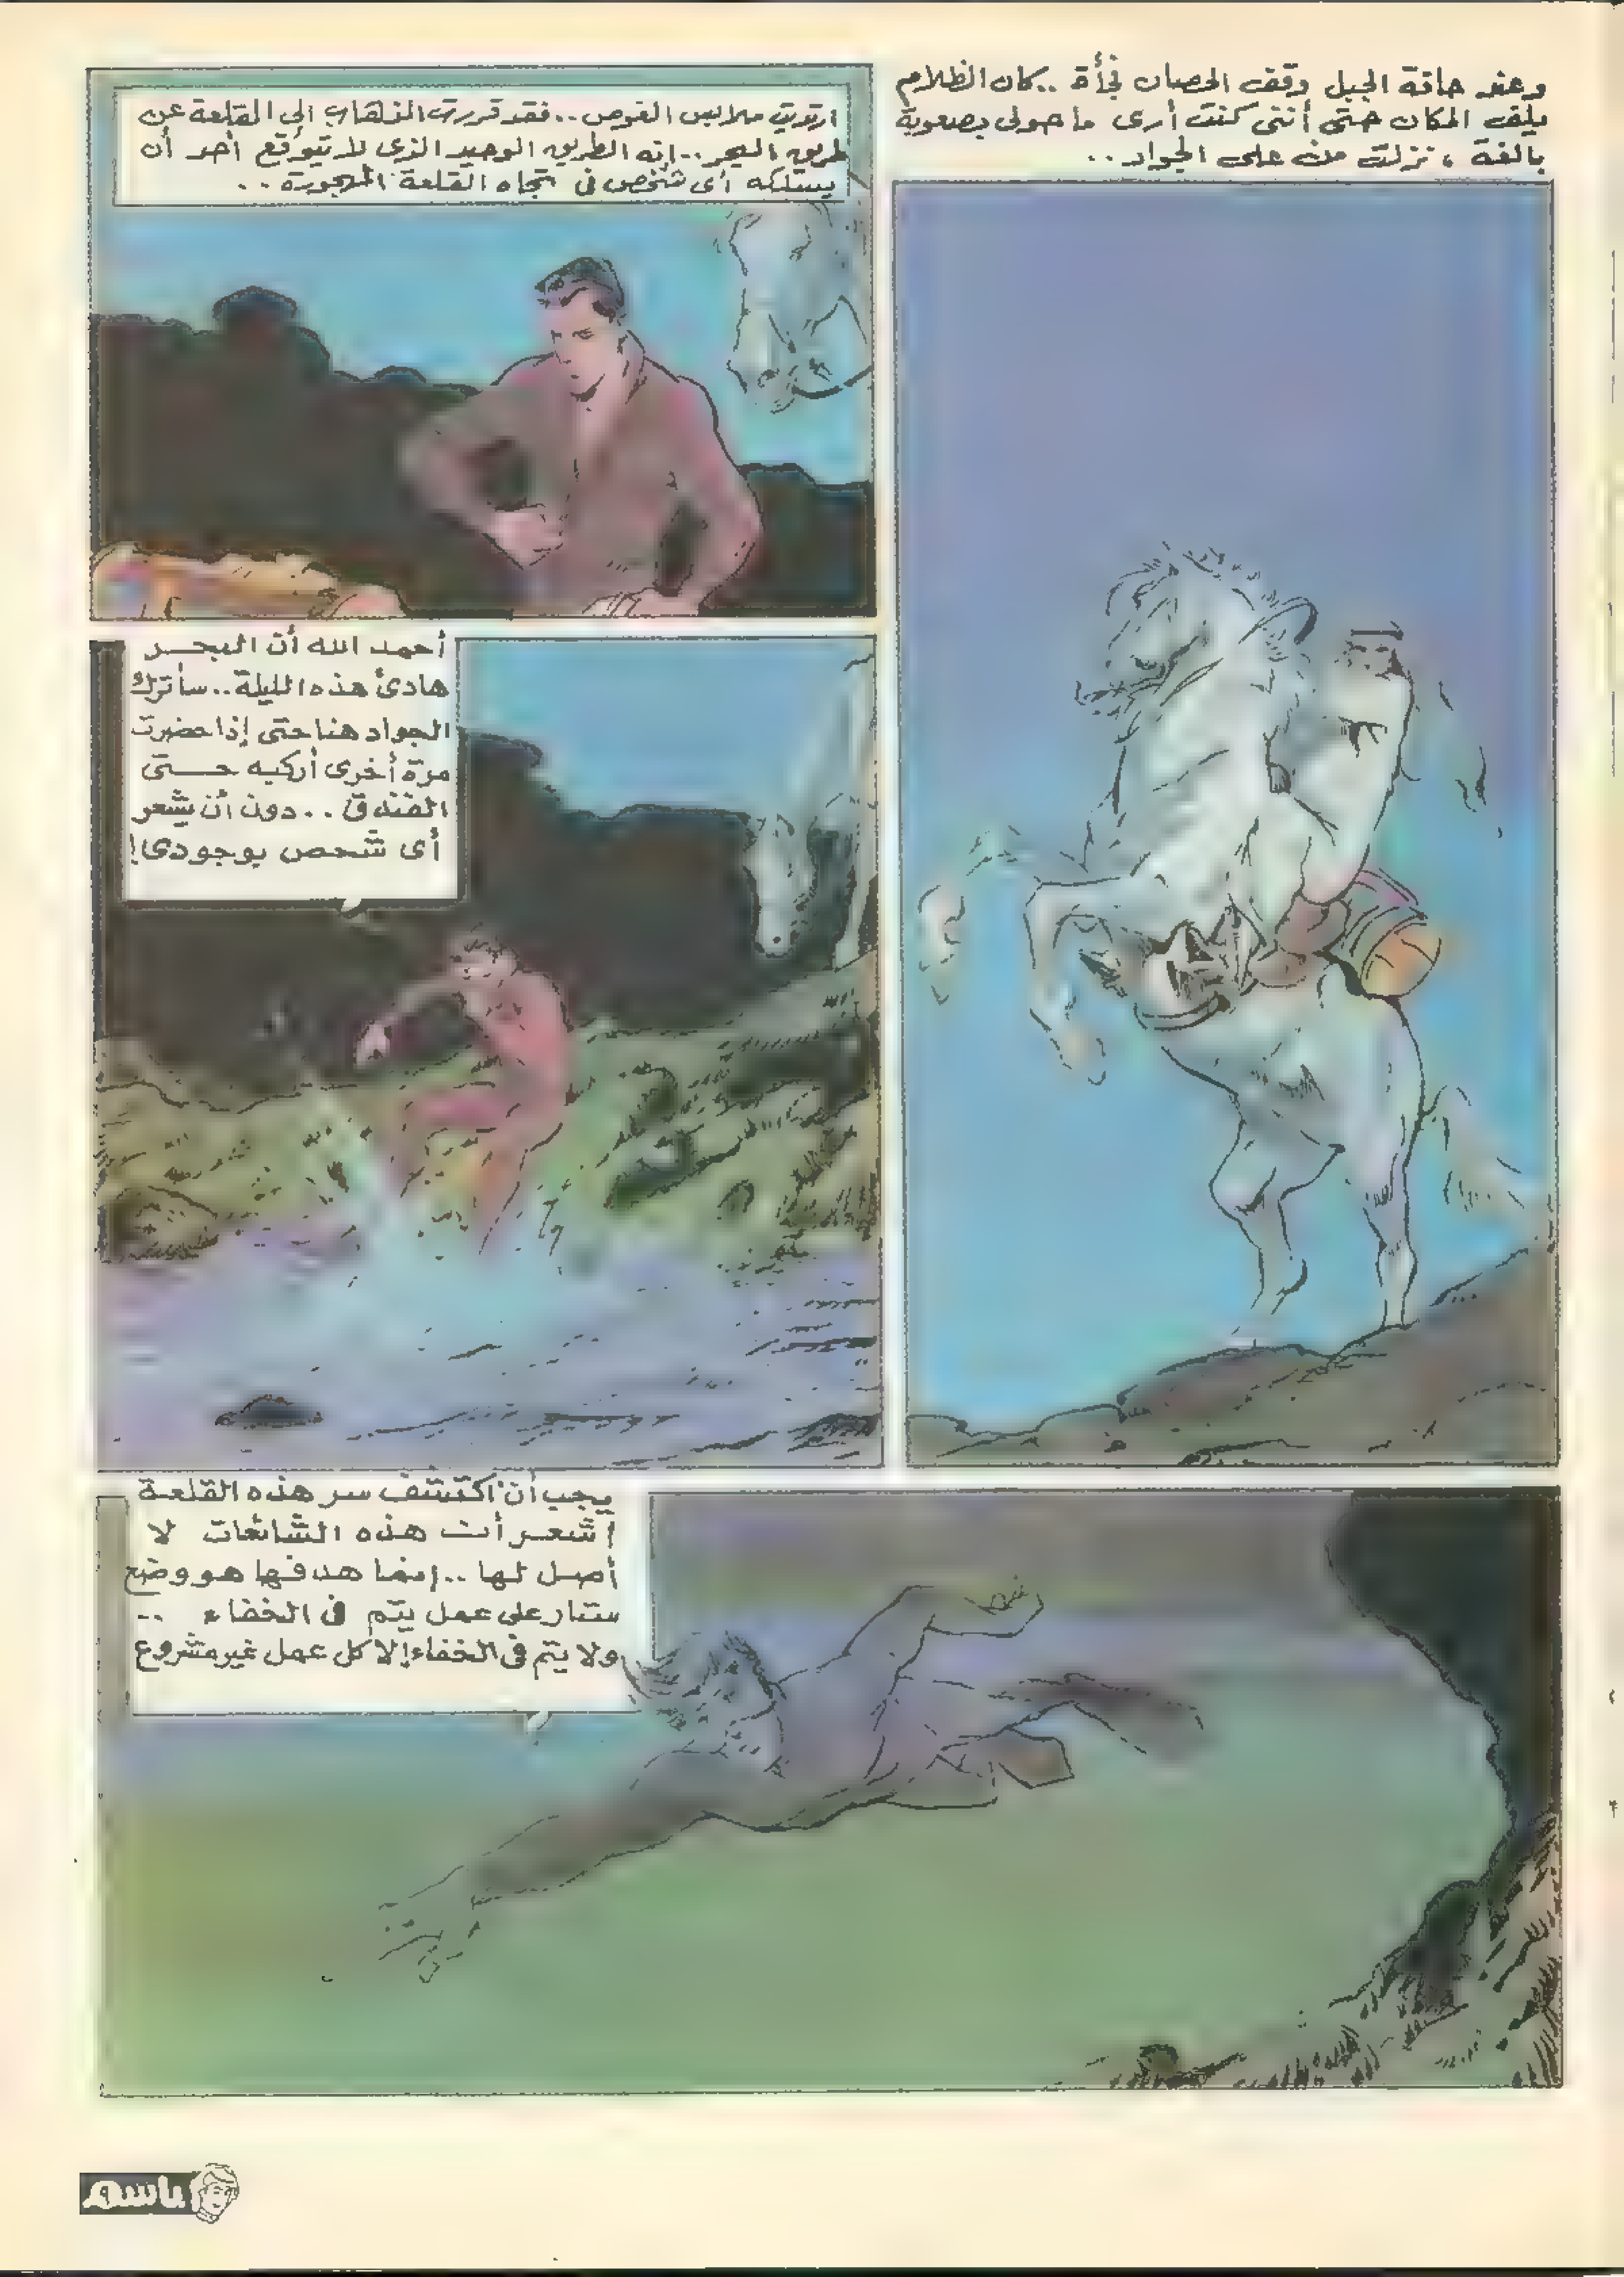 وعند حافة الجبل وقف الحصان فجأة .. كان الظلام
يلف المكان حتى أننى كنت أرى ما حولى بصعوبة
بالغة ، نزلت من على الجواد ..
ارتديت ملابس الغوص .. فقد قررت الذهاب إلى القلعة عن
طريق البحر .. إنه الطريق الوحيد الذى لا يتوقع أحد أن
يسلكه أى شخص فى اتجاه القلعة المهجورة ..
أحمد الله أن البحر
هادئ هذه الليلة .. سأترك
الجواد هنا حتى إذا حضرت
مرة أخرى أركبه حتى
الفندق .. دون أن يشعر
أى شخص بوجودى !
يجب أن أكتشف سر هذه القلعة
أشعر أن هذه الشائعات لا
أصل لها .. إنما هدفها هو وضع
ستار على عمل يتم فى الخفاء ..
ولا يتم فى الخفاء إلا كل عمل غير مشروع
باسم